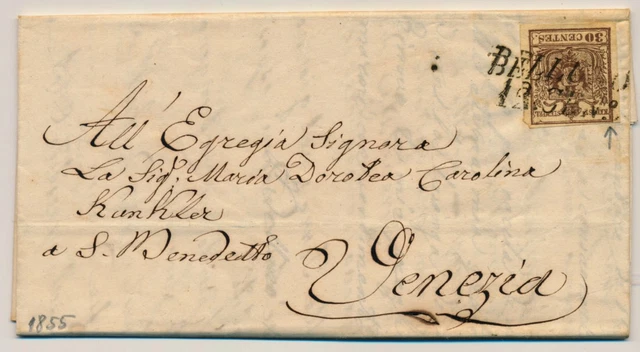 30 CENTES.
BELLU
All' Egregia Signora
La Sigª. Maria Dorotea Carolina
Kunkler
a S. Benedetto
Venezia
1855